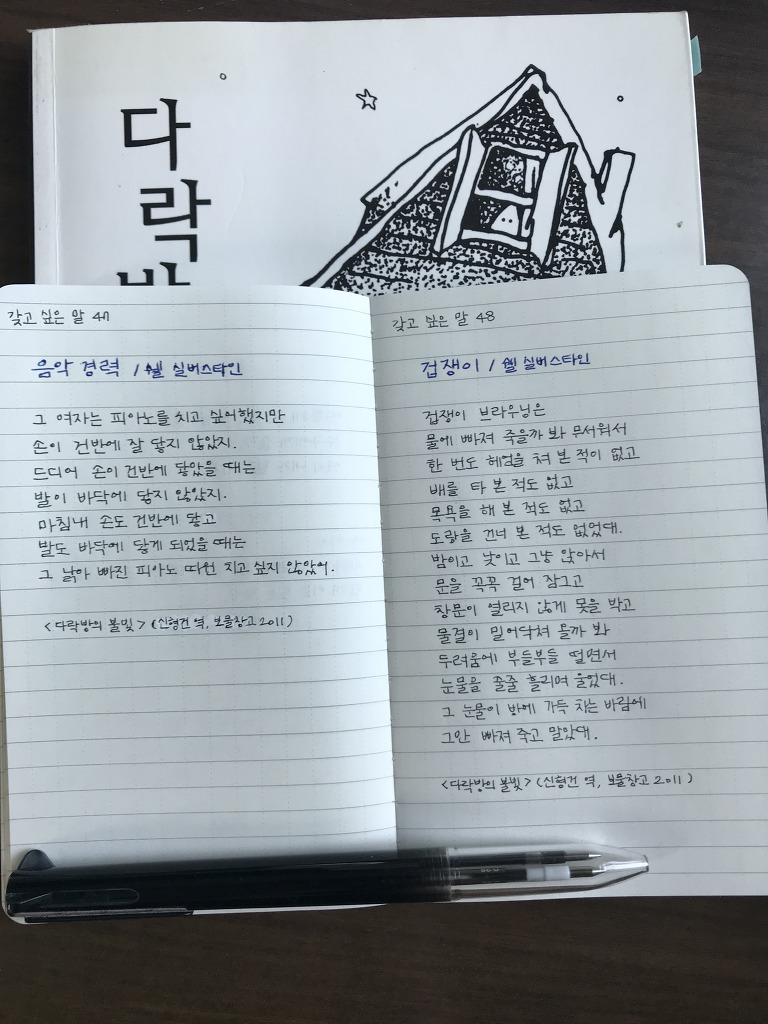 다
락
갖고 싶은 말 47
음악 경력 / 쉘 실버스타인
그 여자는 피아노를 치고 싶어했지만
손이 건반에 잘 닿지 않았지.
드디어 손이 건반에 닿았을 때는
발이 바닥에 닿지 않았지.
마침내 손도 건반에 닿고
발도 바닥에 닿게 되었을 때는
그 낡아 빠진 피아노 따윈 치고 싶지 않았어.
<다락방의 불빛> (신형건 역, 보물창고 2011)
갖고 싶은 말 48
겁쟁이 / 쉘 실버스타인
겁쟁이 브라우닝은
물에 빠져 죽을까 봐 무서워서
한 번도 헤엄을 쳐 본 적이 없고
배를 타 본 적도 없고
목욕을 해 본 적도 없고
도랑을 건너 본 적도 없었대.
밤이고 낮이고 그냥 앉아서
문을 꼭꼭 걸어 잠그고
창문이 열리지 않게 못을 박고
물결이 밀어닥쳐 올까 봐
두려움에 부들부들 떨면서
눈물을 줄줄 흘리며 울었대.
그 눈물이 방에 가득 차는 바람에
그만 빠져 죽고 말았대.
<다락방의 불빛> (신형건 역, 보물창고 2011)